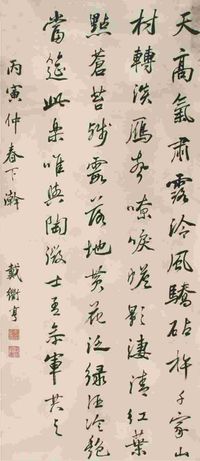 天高氣肅露冷風驕砧杵千家山
村轉淡雁聲嘹唳燈影淒清紅葉
點蒼苔殘露落地黃花泛綠酒冷艷
當筵此樂唯與陶徵士王參軍共之
丙寅仲春下澣
戴衢亨